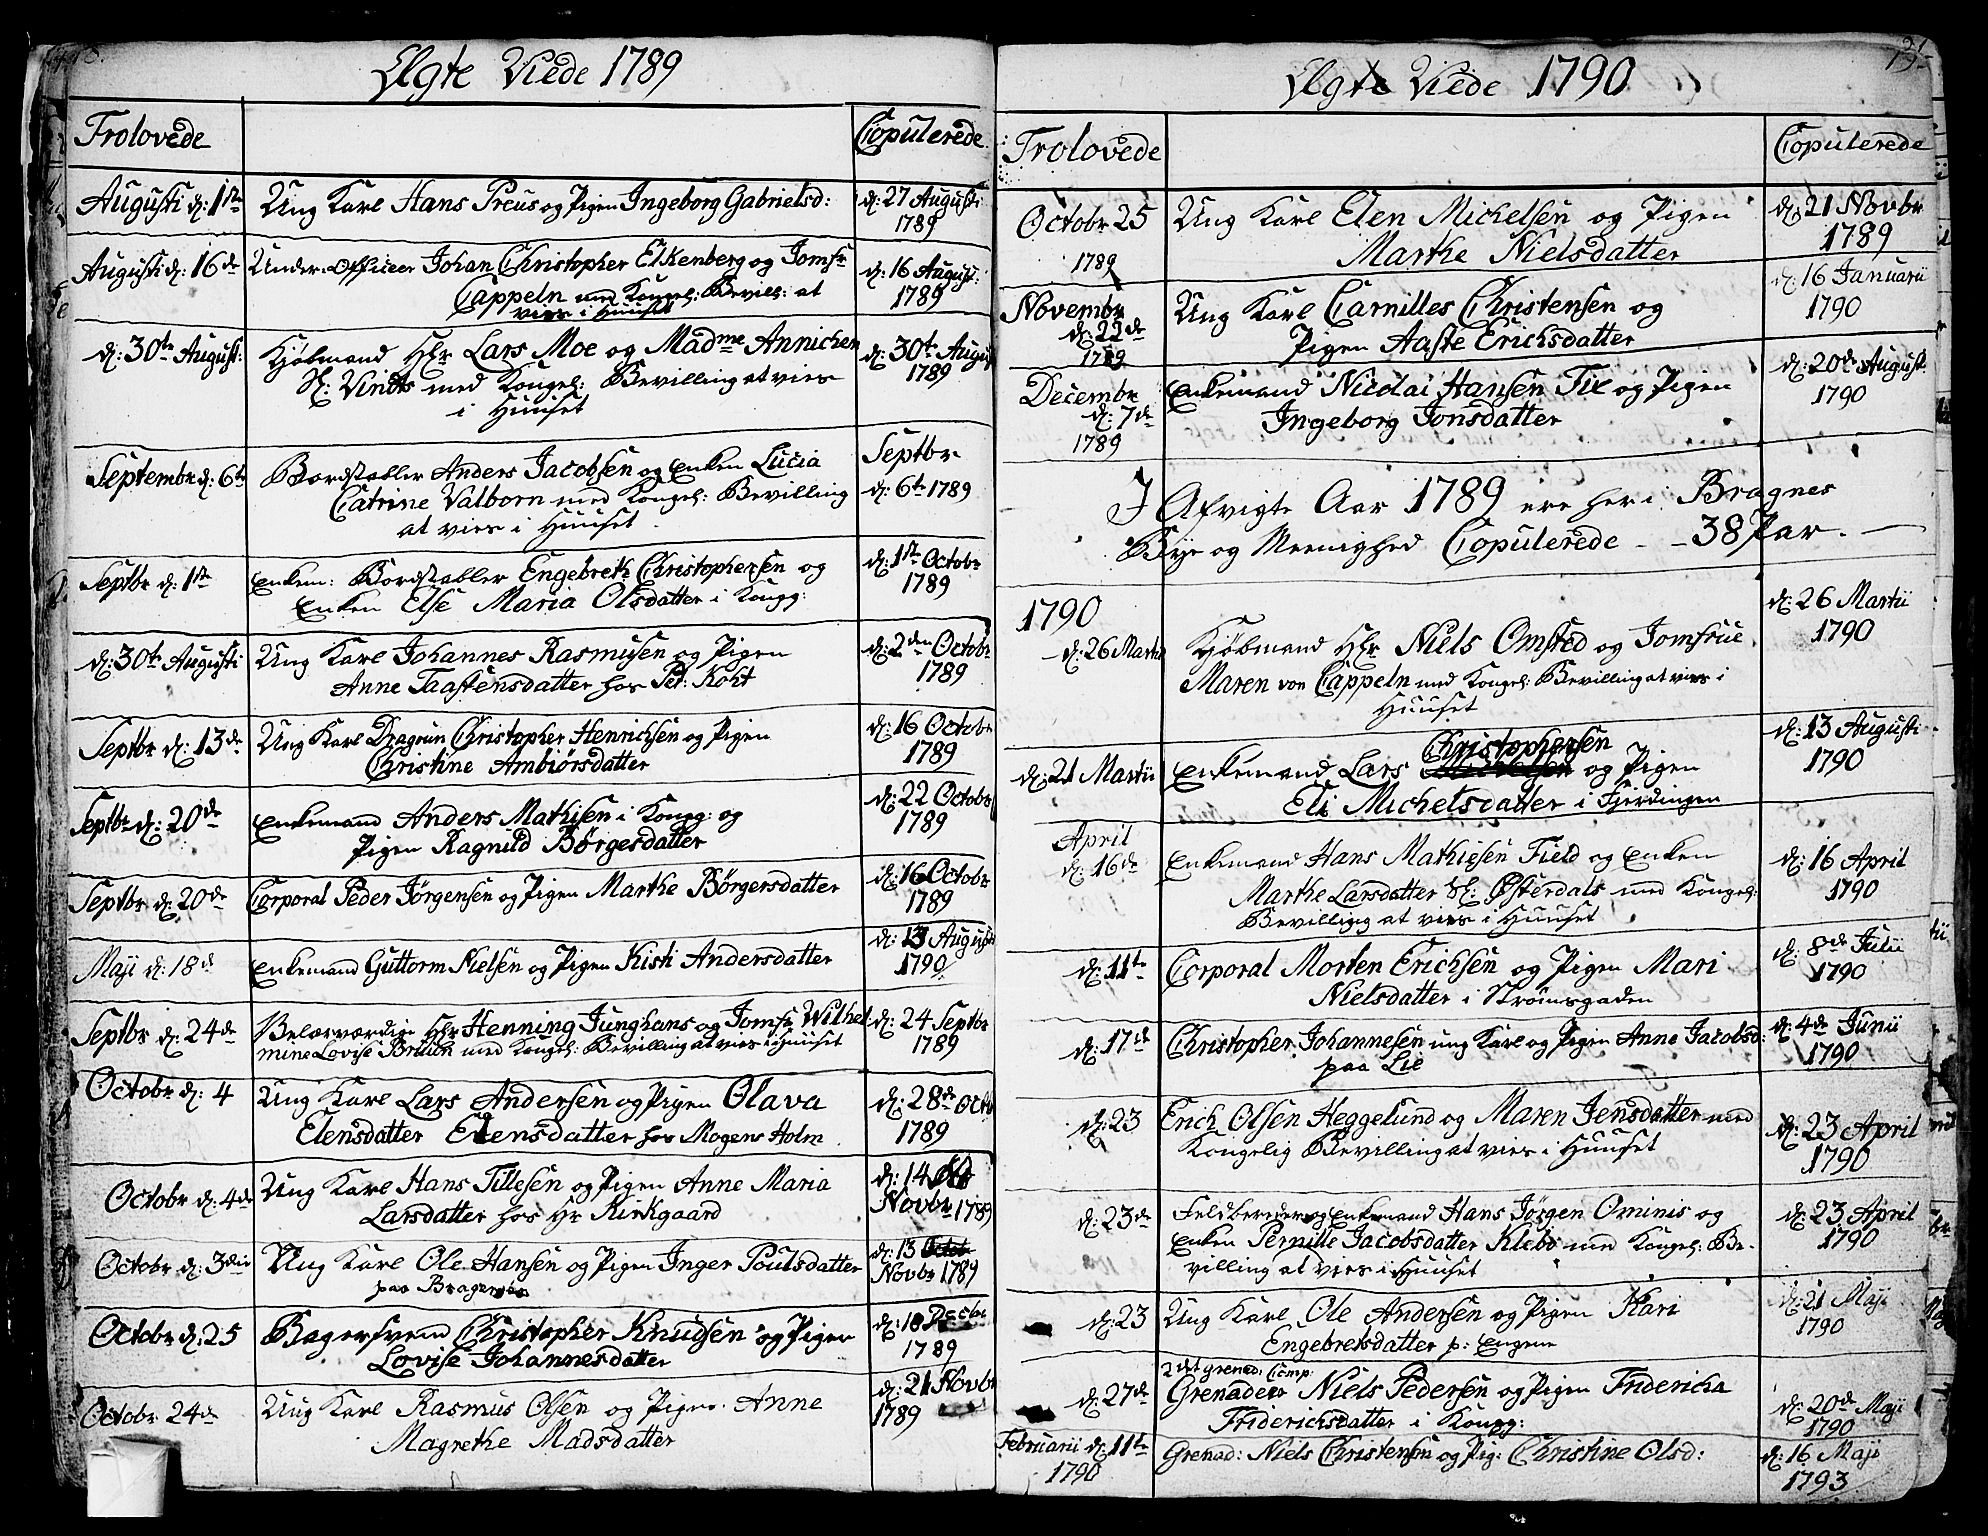 Ægte Viede 1789
Trolovede
Copulerede
Augusti d: 1ste
Ung Karl Hans Preus og Pigen Ingeborg Gabrielsd:
d: 27 Augusti
1789
Augusti d: 16de
Under-Officeer Johan Christopher Elkenberg og Jomfr
Cappeln med Kongel: Bevill: at
vies i Huuset
d: 16 August:
1789
d: 30te August:
Kjøbmand Hr Lars Moe og Madme Annichen
Sl: Vindts med Kongel: Bevilling at vies
i Huuset
d: 30te August
1789
Septembr d: 6te
Bordstabler Anders Jacobsen og Enken Lucia
Catrine Valborn med Kongel: Bevilling
at vies i Huuset
Septbr
d: 6te 1789
Septbr d: 1ste
Enkem: Bordstabler Engebreth Christophersen og
Enken Else Maria Olsdatter i Kongg:
d: 1ste Octobr
1789
d: 30te Augusti
Ung Karl Johannes Rasmusen og Pigen
Anne Taastensdatter hos Ped: Koht
d: 2den Octobr
1789
Septbr d: 13de
Ung Karl Dragun Christopher Henrichsen og Pigen
Christine Ambiørsdatter
d: 16 Octobr
1789
Septbr d: 20de
Enkemand Anders Mathisen i Kongg: og
Pigen Ragnild Børgesdatter
d: 22 Octobr
1789
Septbr d: 20de
Corporal Peder Jørgensen og Pigen Marthe Børgersdatter
d: 16 Octobr
1789
Maji d: 18de
Enkemand Guttorm Nielsen og Pigen Kisti Andersdatter
d: 13 Augusti
1790
Septbr d: 24de
Velærværdige Hr Henning Junghans og Jomfr Wilhel
mine Lovise Bruun med Kongel: Bevilling at vies i Huuset
d: 24 Septbr
1789
Octobr d: 4
Ung Karl Lars Andersen og Pigen Olava
Elensdatter Elensdatter hos Mogens Holm
d: 28de Octo
1789
Octobr d: 4de
Ung Karl Hans Tillesen og Pigen Anne Maria
Larsdatter hos Hr Kirkgaard
d: 14
Novbr 1789
Octobr d: 3die
Ung Karl Ole Hansen og Pigen Inger Poulsdatter
paa Bragernes
d: 13 Octob
Novbr 1789
Octobr d: 25
Bagersvend Christopher Knudsen og Pigen
Lovise Johannesdatter
d: 18 Decbr
1789
Octobr 24de
Ung Karl Rasmus Olsen og Pigen Anne
Magrethe Madsdatter
d: 21 Novbr
1789
Ægte Viede 1790
Trolovede
Copulerede
Octobr 25
1789
Ung Karl Elen Michelsen og Pigen
Marthe Nielsdatter
d: 21 Novbr
1789
Novembr
d: 22de
1789
Ung Karl Carnilles Christensen og
Pigen Aaste Ericksdatter
d: 16 Januarii
1790
Decembr
d: 7de
1789
Enkemand Nicolai Hansen Fix og Pigen
Ingeborg Jonsdatter
d: 20de August:
1790
I Afvigte Aar 1789 ere her i Bragnes
Bye og Meenighed Copulerede - - 38 Par. -
1790
d: 26 Martii
Kjøbmand Hr Niels Omsted og Jomfrue
Maren von Cappeln med Kongel: Bevilling at vies i
Huuset
d: 26 Martii
1790
d: 21 Martii
Christophersen
Enkemand Lars og Pigen
Eli Michelsdatter i Fjerdingen
d: 13 Augusti
1790
April
d: 16de
Enkemand Hans Mathiesen Field og Enken
Marthe Larsdatter Sl: Østerdals med Kongel:
Bevilling at vies i Huuset
d: 16 April
1790
d: 11te
Corporal Morten Erichsen og Pigen Mari
Nielsdatter i Strømsgaden
d: 8de Julii
1790
d: 17de
Christopher Johannesen ung Karl og Pigen Anne Jacobsd:
paa Lie
d: 4de Junii
1790
d: 23
Erich Olsen Heggelund og Maren Jensdatter med
Kongelig Bevilling at vies i Huuset
d: 23 April
1790
d: 23de
Feldbereder og Enkemand Hans Jørgen Ominis og
Enken Pernille Jacobsdatter Klebo med Kongel: Be-
villing at vies i Huuset
d: 23 April
1790
d: 23
Ung Karl Ole Andersen og Pigen Kari
Engebretsdatter p: Engene
d: 21 Maji
1790
2det Grenad: Comp:
d: 27de
Grenadeer Niels Pedersen og Pigen Fridericha
Friderichsdatter i Kongg:
d: 20de Maji
1790
Februarii d: 11te
1790
Grenad: Niels Christensen og Pig: Christine Olsd:
d: 16 Maji
1793